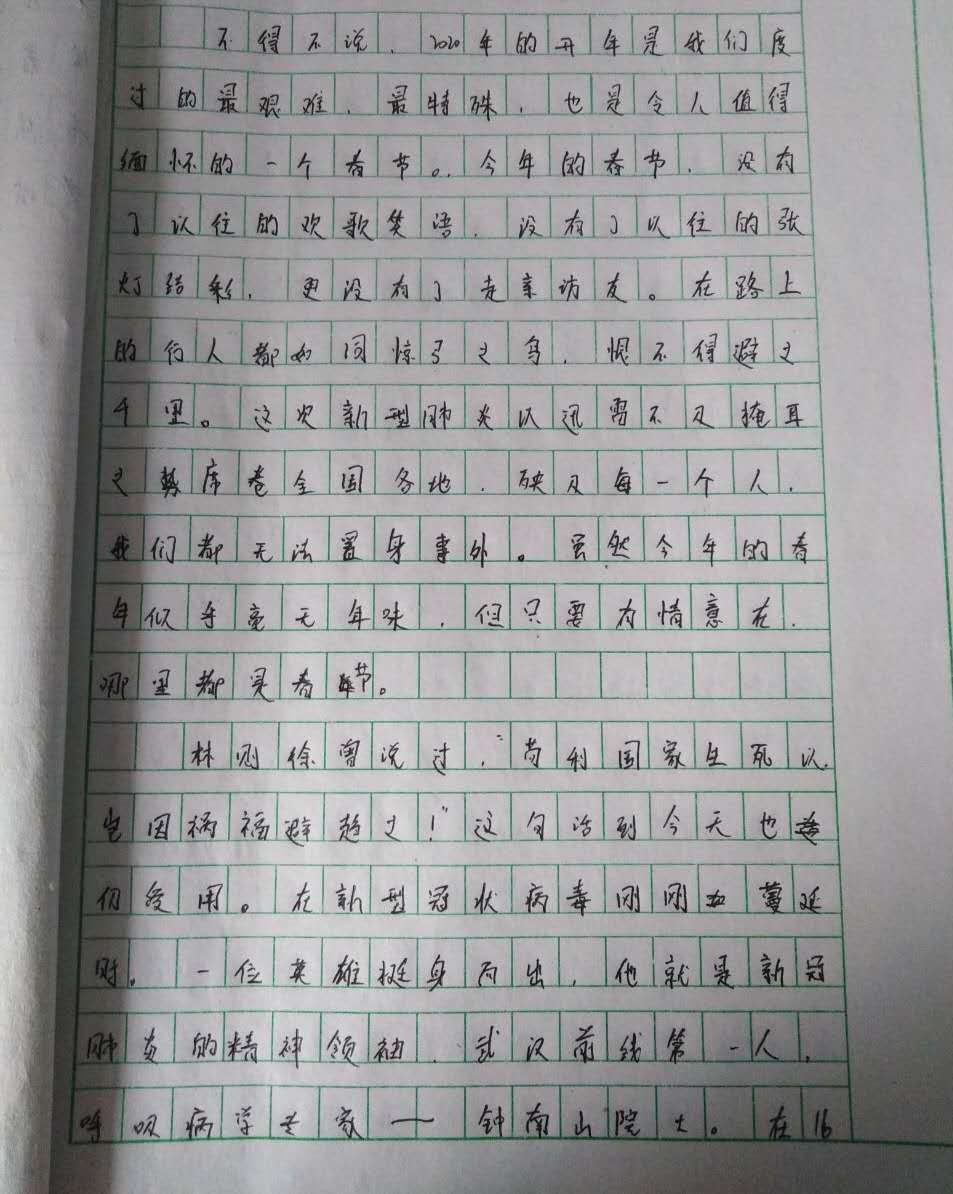 不得不说，2020年的开年是我们度
过的最艰难，最特殊，也是令人值得
缅怀的一个春节。今年的春节，没有
了以往的欢歌笑语，没有了以往的张
灯结彩，更没有了走亲访友。在路上
的行人都如同惊弓之鸟，恨不得避之
千里。这次新型肺炎以迅雷不及掩耳
之势席卷全国各地，殃及每一个人，
我们都无法置身事外。虽然今年的春
年似乎毫无年味，但只要有情意在，
哪里都是春节。
林则徐曾说过，“苟利国家生死以，
岂因祸福避趋之！”这句话到今天也
仍受用。在新型冠状病毒刚刚蔓延
时。一位英雄挺身而出，他就是新冠
肺炎的精神领袖，武汉前线第一人，
呼吸病学专家——钟南山院士。在16